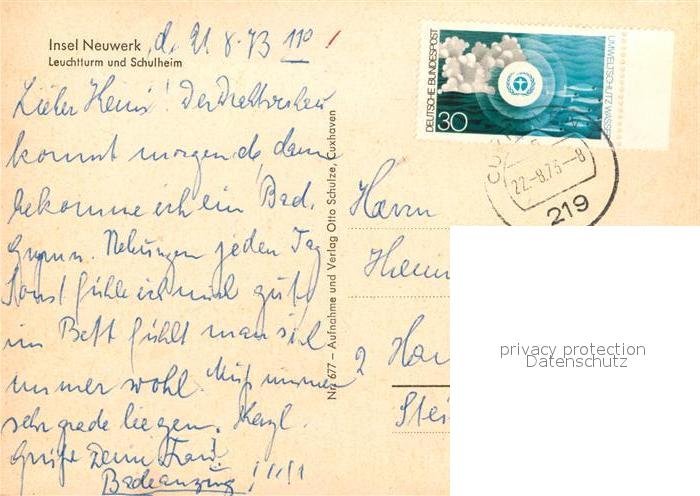 Insel Neuwerk, d. 21.8.73 11°°!
Leuchtturm und Schulheim
Lieber Heini!
kommt morgen da, dann
bekomme ich ein Bad.
Gymn. jeden Tag
Sonst fühle ich mich gut,
im Bett fühlt man sich
immer wohl. Muß immer
sehr grade liegen. Herzl.
Grüße Deine
Badeanzug!!!!!
Nr. 677 – Aufnahme und Verlag Otto Schulze, Cuxhaven
DEUTSCHE BUNDESPOST
30
UMWELTSCHUTZ WASSER
22.-8.73-8
219
Herrn
2 Ha
privacy protection
Datenschutz